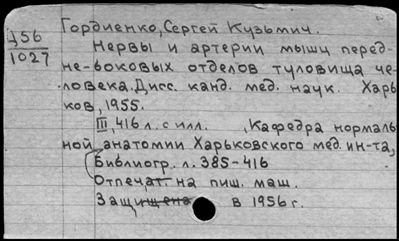 Гордиенко, Сергей Кузьмич.
Д56
1027
Нервы и артерии мышц перед-
не-боковых отделов туловища че-
ловека. Дисс. канд. мед. наук. Харь
ков, 1955.
III, 416 л. с илл. , Кафедра нормаль
ной анатомии Харьковского мед. ин-та,
Библиогр. л. 385-416
Отпечат. на пиш. маш.
Защищена в 1956 г.